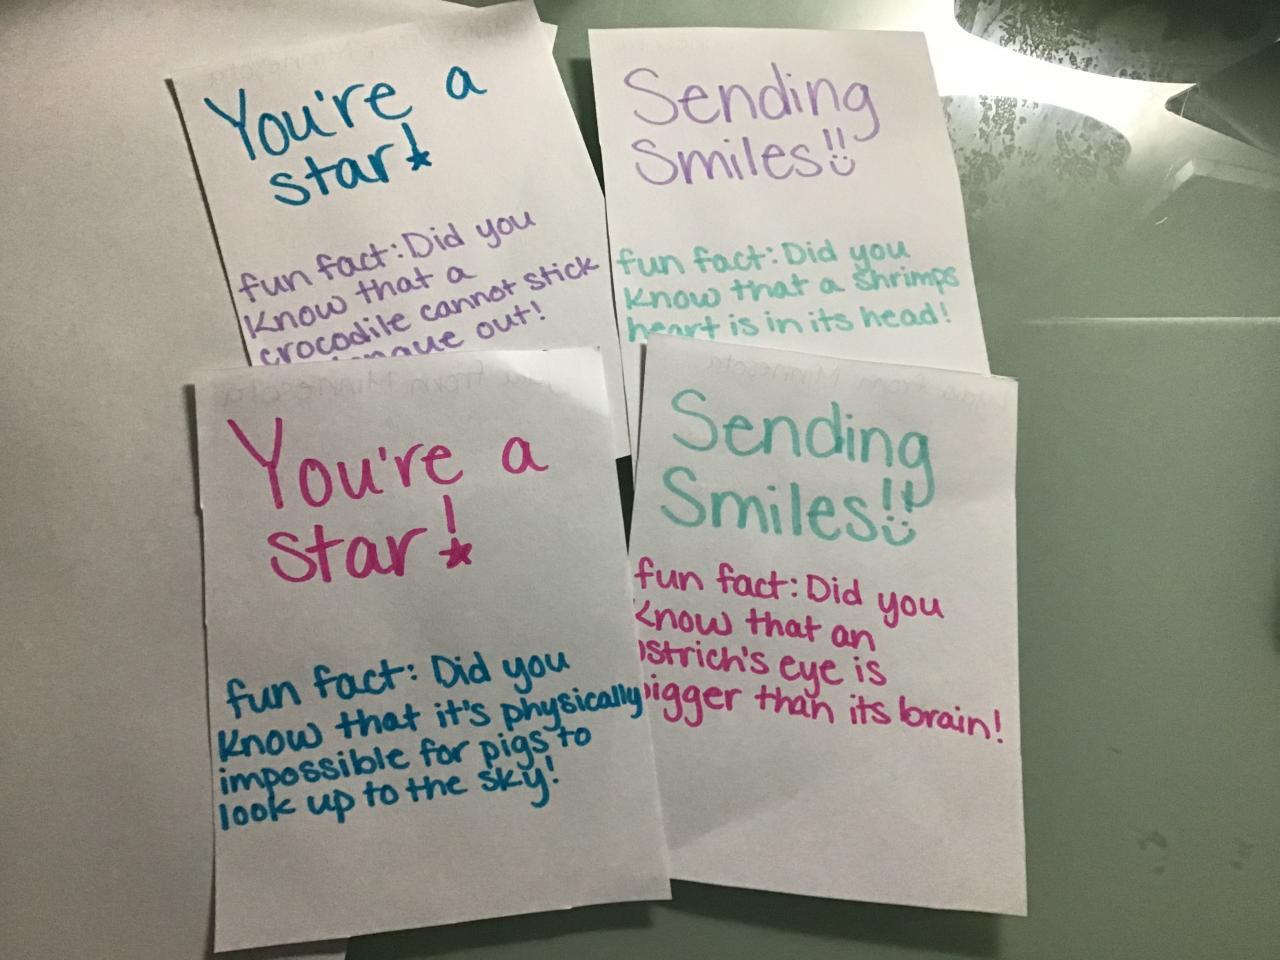 You're a
star!
fun fact: Did you
know that a
crocodile cannot stick
tongue out!
Sending
Smiles!!
fun fact: Did you
know that a shrimps
heart is in its head!
You're a
star!
fun fact: Did you
know that it's physically
impossible for pigs to
look up to the sky!
Sending
Smiles!!
fun fact: Did you
know that an
ostrich's eye is
bigger than its brain!